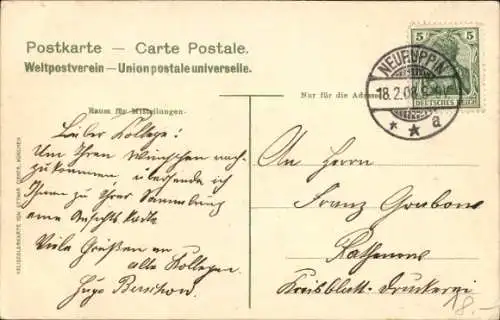 Postkarte — Carte Postale.
Weltpostverein — Union postale universelle.
5 5
DEUTSCHES REICH
NEURUPPIN
18.2.08.
* * a
Raum für Mitteilungen.
Nur für die Adresse
Lieber Kollege!
Um Ihren Wünschen nach-
zukommen, übersende ich
Ihnen zu Ihrer Sammlung
eine Ansichtskarte
Viele Grüßen an
alle Kollegen
Hugo
An Herrn
Franz
Rathenow
Kreisblatt-Druckerei
18.-